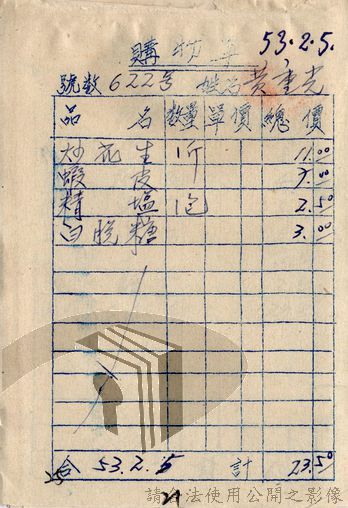 購物單 53.2.5.
號数 622号 姓名 黄重光
品名 数量 單價 總價
炒花生 1斤 11.00
蝦皮 7.00
精塩 1包 2.50
白脫糖 3.00
合 53.2.5 計 23.50
請合法使用公開之影像